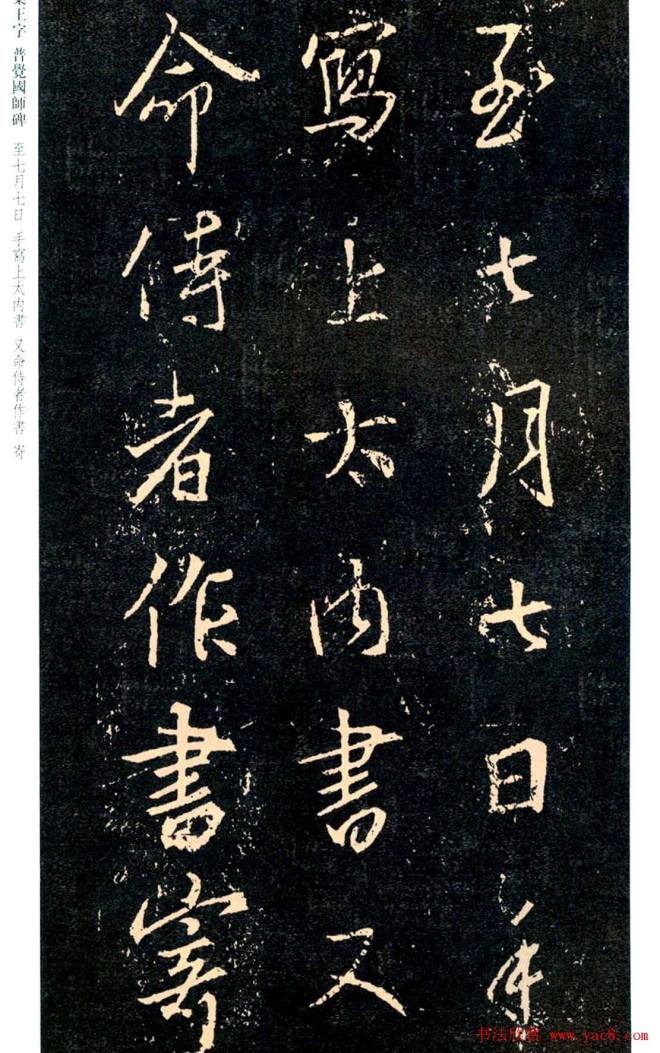 至七月七日手
寫上太内書又
命侍者作書寄
王字 普覺國師碑 至七月七日 手寫上太内書 又命侍者作書 寄
书法欣赏 www.yac8.com